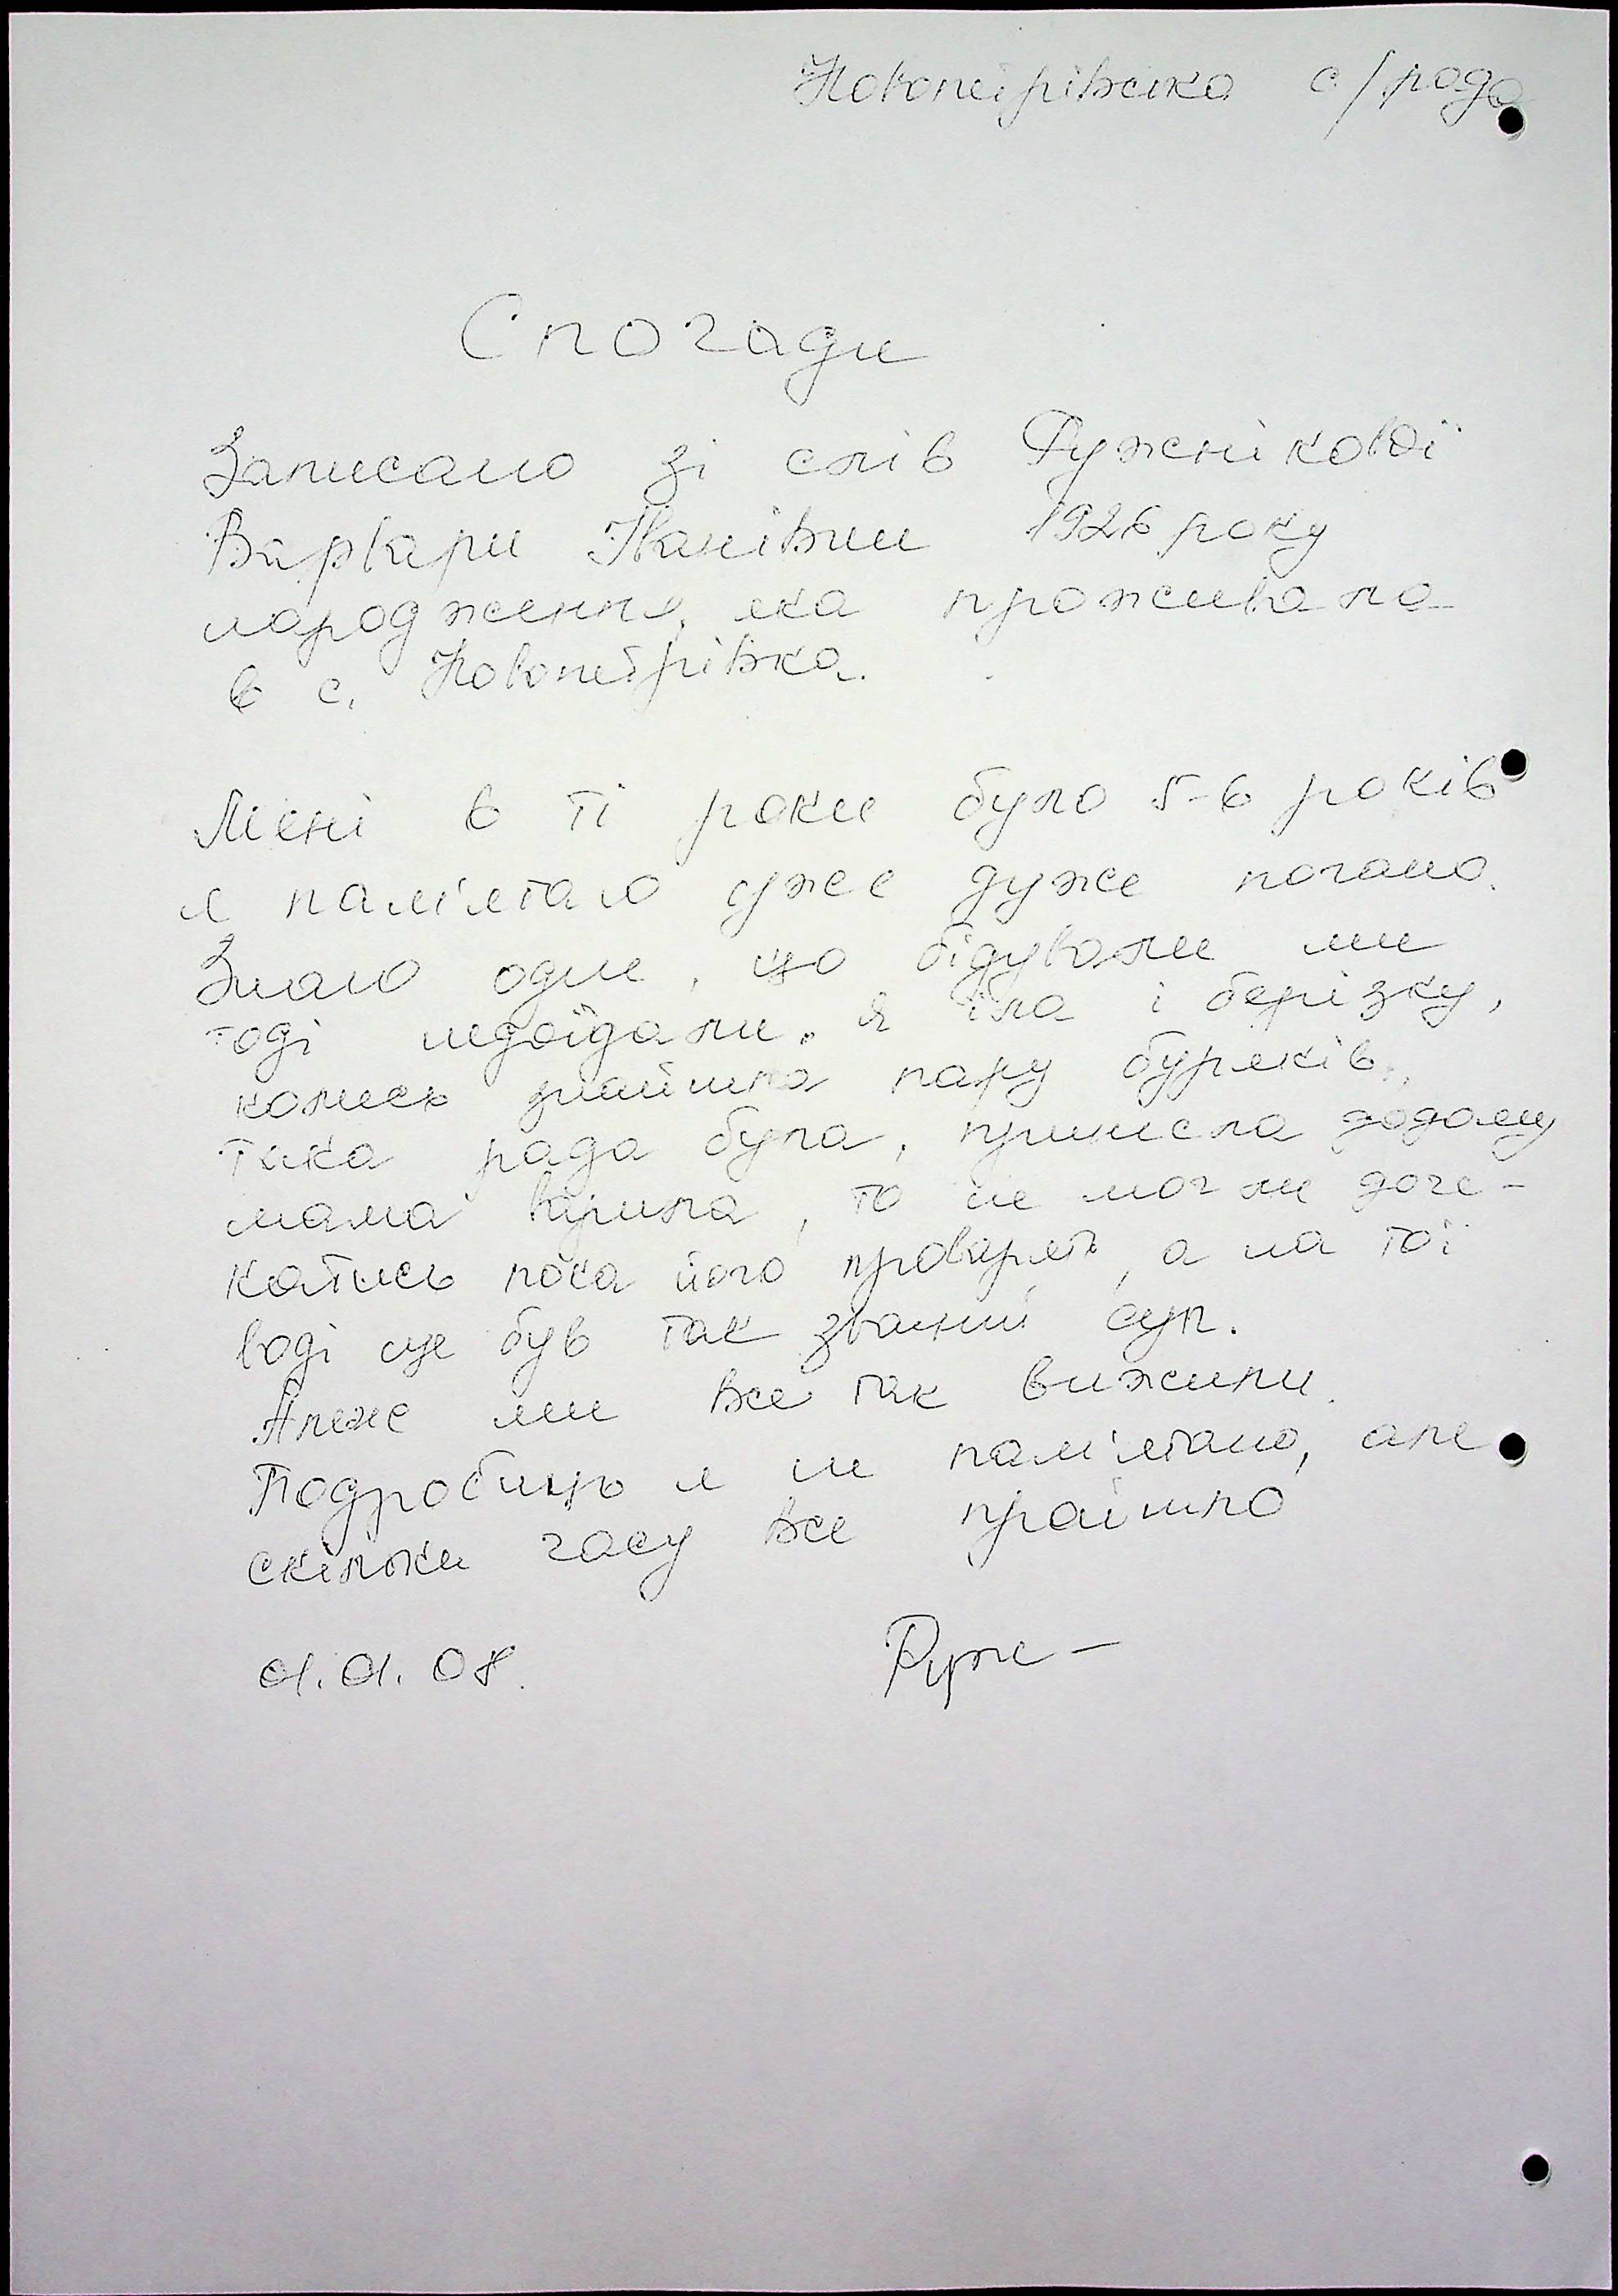 Новопетрівська с/рада
Спогади
Записано зі слів Ружнікової
Варвари Іванівни 1926 року
народження, яка проживала
в с. Новопетрівка.
Мені в ті роки було 5-6 років
я пам'ятаю уже дуже погано.
Знаю одне, що бідували ми
тоді недоїдали. я їла і берізку,
колись знайшла пару буряків,
така рада була, принесла додому
мама варила, то не могли доче-
катись пока його проварят, а на тої
воді ще був так званий суп.
Але ми все так вижили.
Подробиць я не пам'ятаю, але
скільки часу все пройшло
01.01.08. Руж-